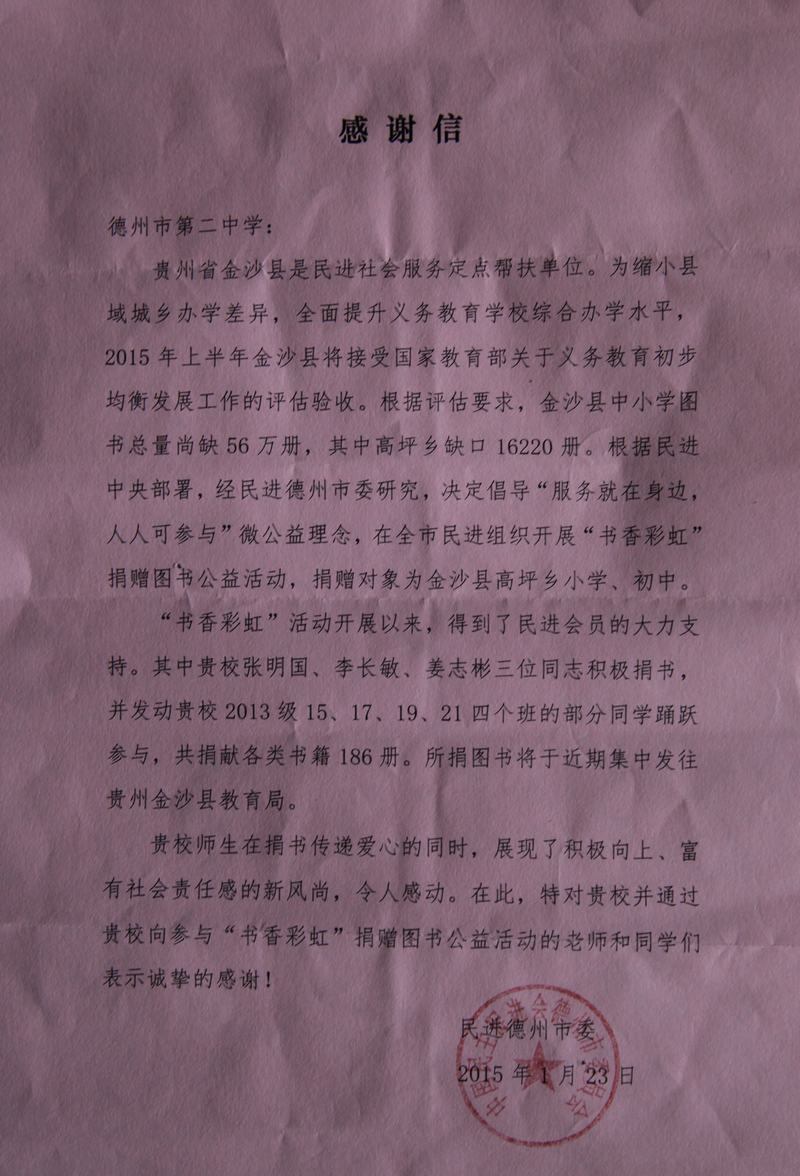 感谢信
德州市第二中学：
贵州省金沙县是民进社会服务定点帮扶单位。为缩小县
域城乡办学差异，全面提升义务教育学校综合办学水平，
2015年上半年金沙县将接受国家教育部关于义务教育初步
均衡发展工作的评估验收。根据评估要求，金沙县中小学图
书总量尚缺56万册，其中高坪乡缺口16220册。根据民进
中央部署，经民进德州市委研究，决定倡导“服务就在身边，
人人可参与”微公益理念，在全市民进组织开展“书香彩虹”
捐赠图书公益活动，捐赠对象为金沙县高坪乡小学、初中。
“书香彩虹”活动开展以来，得到了民进会员的大力支
持。其中贵校张明国、李长敏、姜志彬三位同志积极捐书，
并发动贵校2013级15、17、19、21四个班的部分同学踊跃
参与，共捐献各类书籍186册。所捐图书将于近期集中发往
贵州金沙县教育局。
贵校师生在捐书传递爱心的同时，展现了积极向上、富
有社会责任感的新风尚，令人感动。在此，特对贵校并通过
贵校向参与“书香彩虹”捐赠图书公益活动的老师和同学们
表示诚挚的感谢！
民进德州市委
2015年1月23日
中国民主促进会德州市委员会